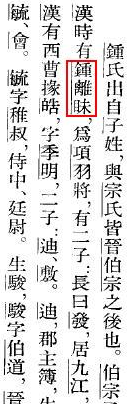 鍾氏出自子姓，與宗氏皆晉伯宗之後也。伯宗子
漢時有鍾離眛，爲項羽將，有二子：長曰發，居九江，
漢有西曹掾皓，字季明，二子：迪、敷。迪，郡主簿，生
毓、會。毓字稚叔，侍中、廷尉。生駿，駿字伯道，晉